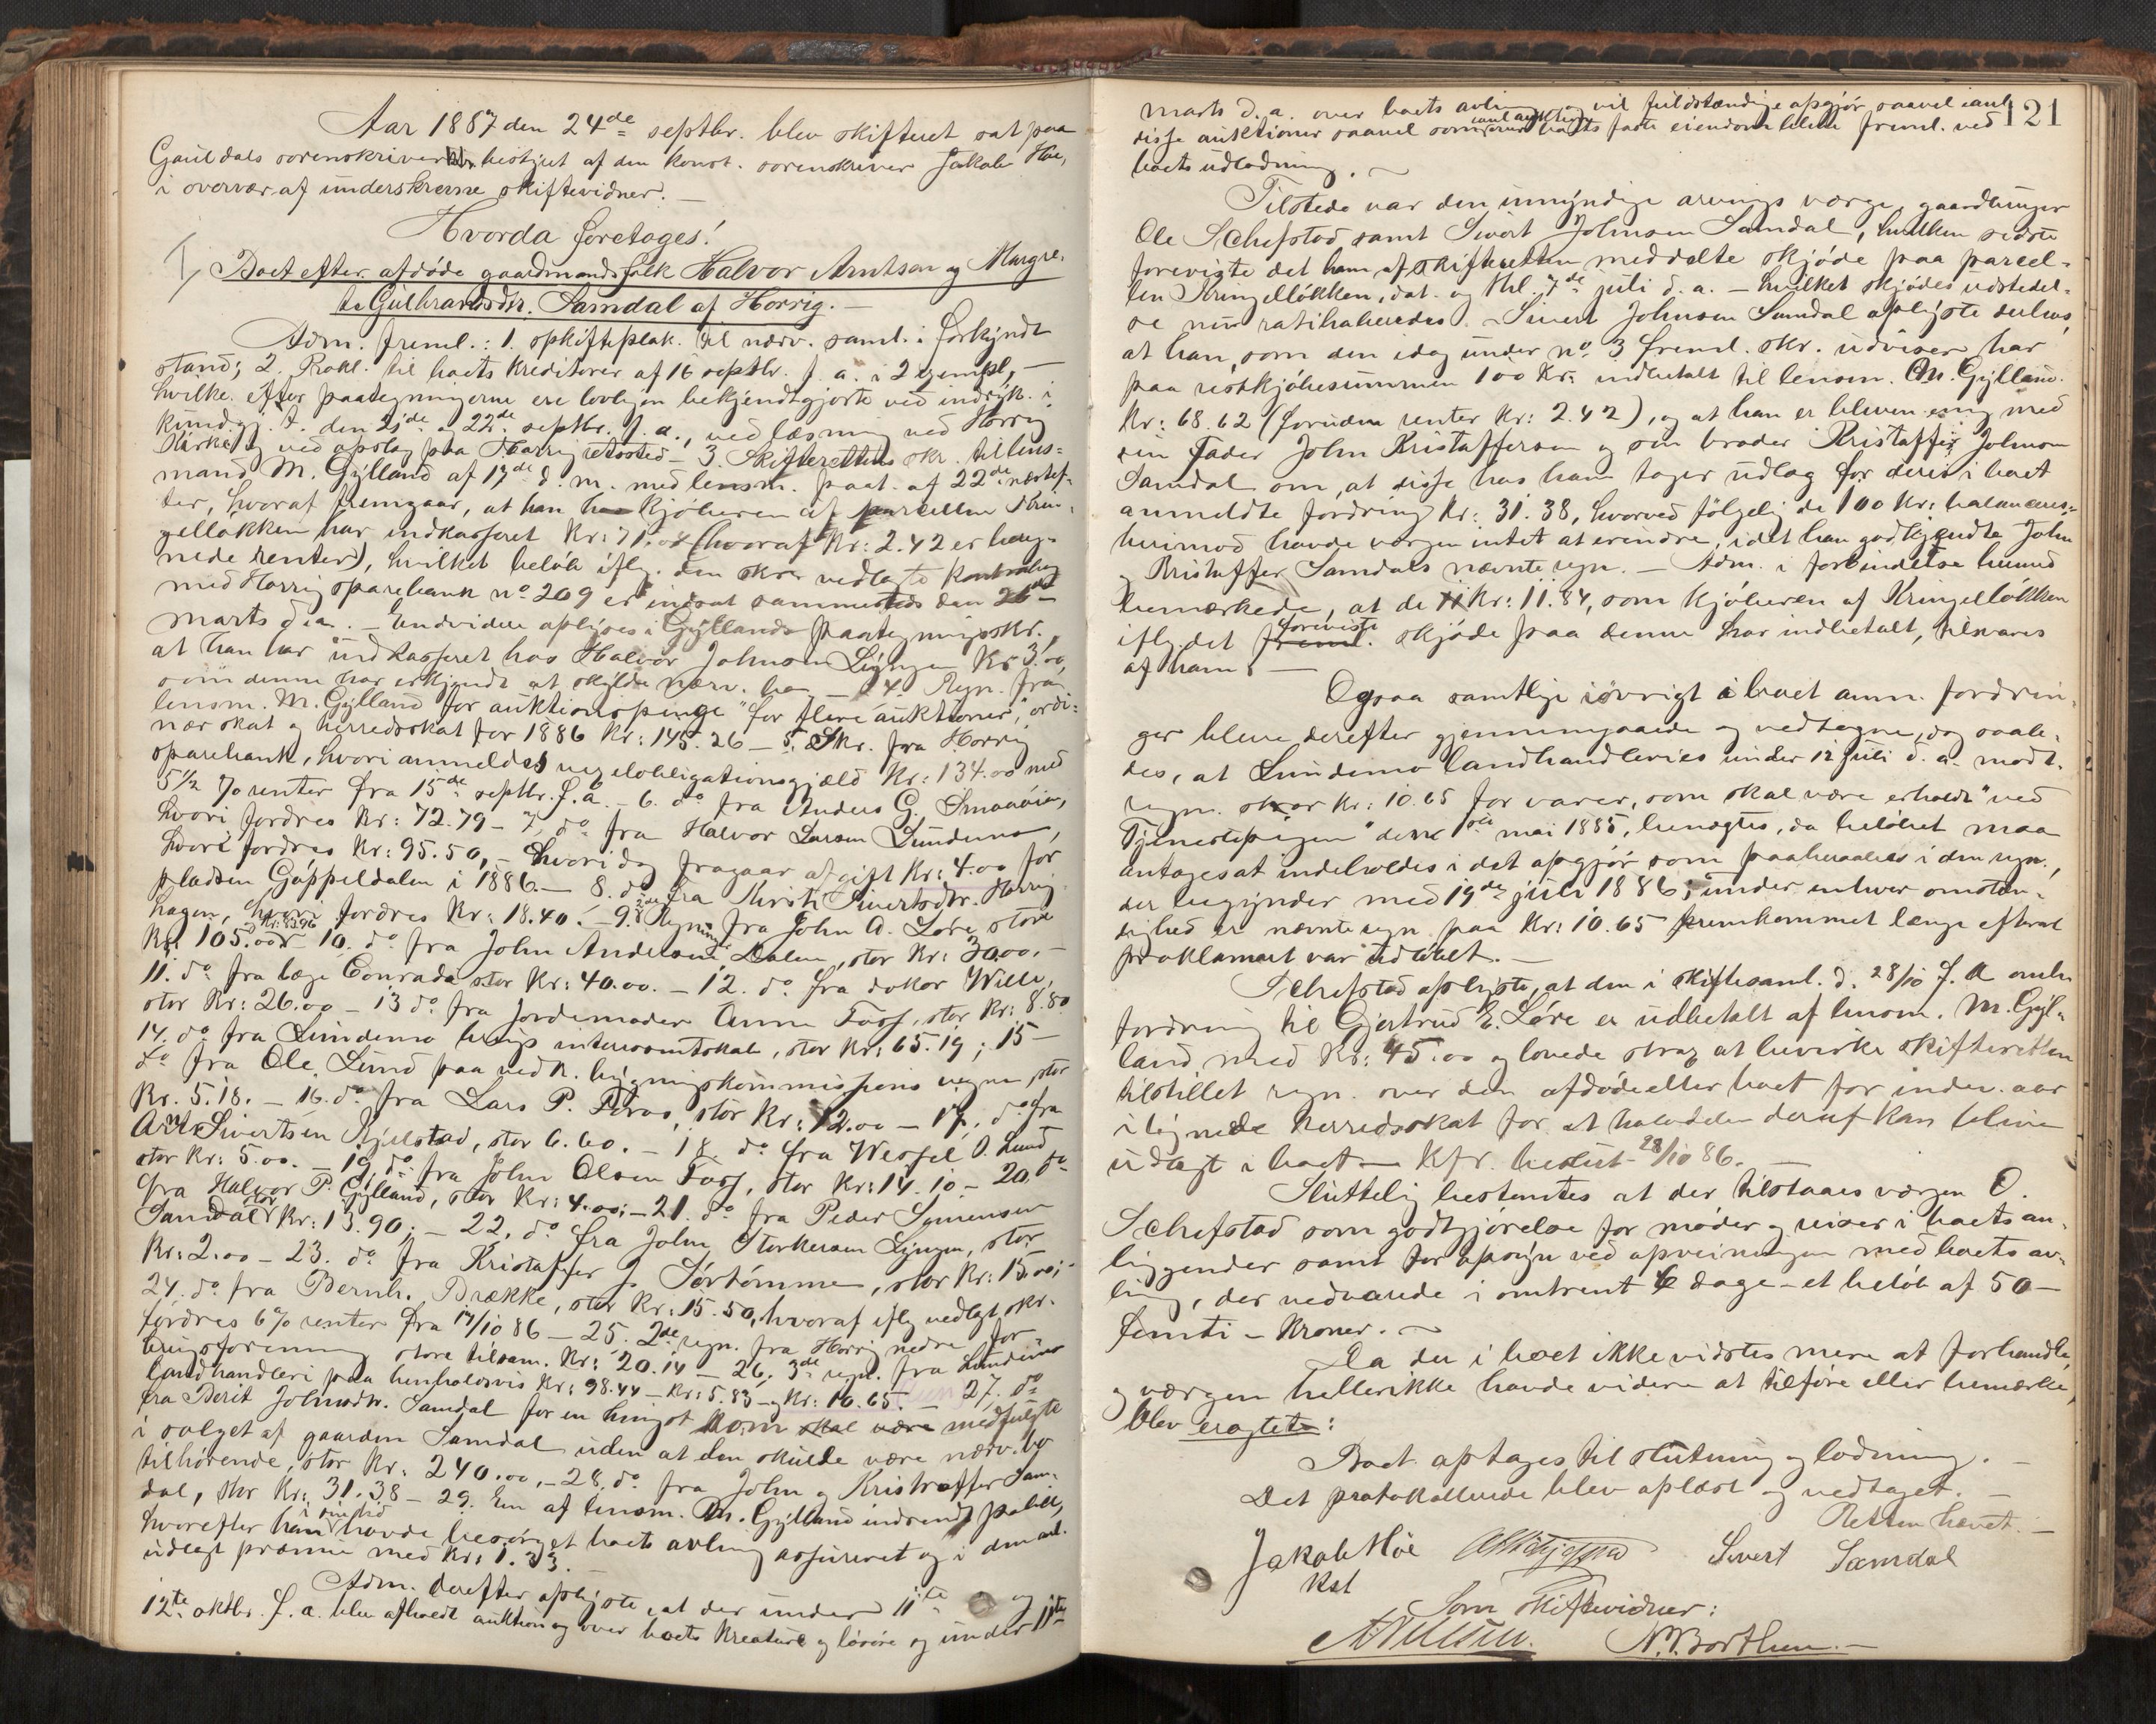 Aar 1887 den 24de septbr. blev skifteret sat paa
Gauldals sorenskriver bestyret af den konst. sorenskriver Jakob Høe,
i overvær af underskrevne skiftevidner. —
Hvorda foretoges:
1, Boet efter afdøde gaardmandsfolk Halvor Arntsen og Margre-
te Gulbrandsdtr. Samdal af Horrig. —
Adm. freml.: 1. opkiftsplak. til nærv. saml. i forkyndt
stand; 2. Prokl. til boets kreditorer af 16 septbr. f. a. i 2 exempl, —
hvilke efter paategningerne ere lovligen bekjendtgjorte ved indryk. i
kundgj. t. den 21de og 22de septbr. f. a., ved læsning ved Horrig
Kirke og ved opslag paa Horrig retssted — 3. Skifterettens skr. til lens-
mand M. Gylland af 17de d. m. med lensm. paat. af 22de næstef-
ter, hvoraf fremgaar, at han hos kjøberen af parcellen Krin-
gelløkken har indkasseret Kr: 71.04 (hvoraf Kr: 2.42 er bereg-
nede renter), hvilket beløb iflg. den skr. vedlagte kontrabog
med Horrig sparebank no 209 er indsat sammesteds den 26de
marts d. a. — Endvidere oplyses i Gyllands paategningsskr.,
at han har indkasseret hos Halvor Johnsen Lyngen Kr 3.00,
som denne har erkjendt at skylde nærv. bo — 4. Regn. fra
lensm. M. Gylland for auktionspenge "for flere auktioner", ordi-
nær skat og herredsskat for 1886 Kr: 145.26 — 5. Skr. fra Horrig
sparebank, hvori anmeldes vexelobligationsgjæld Kr: 134.00 med
5 1/2 % renter fra 15de septbr. f. a. — 6. do fra Anders G. Smaaøien,
hvori fordres Kr: 72.79 — 7. do fra Halvor Larsen Lundemo,
hvori fordres Kr: 95.50, — hvori dog fragaar afgift Kr: 4.00 for
pladsen Gåppeldalen i 1886. — 8. do fra Kirsti Sivertsdtr. Horrig
hagen, hvori fordres Kr: 18.40. — 9. 2de Regninger fra John A. Løre, store
Kr: 105.00 & Kr: 83.96 10. do fra John Andersen Dalen, stor Kr: 30.00. —
11. do fra læge Conrads stor Kr: 40.00. — 12. do fra doktor Wille,
stor Kr: 26.00 — 13 do fra jordemoder Anne Foss, stor Kr: 8.80
14. do fra Lundemo brugs interessentskab, stor Kr: 65.19; 15 —
do fra Ole Lund paa vedk. bygningskommissions vegne, stor
Kr. 5.18. — 16. do fra Lars P. Foros, stor Kr: 12.00 — 17. do fra
Arnt Sivertsen Kjelstad, stor 6.60. — 18. do fra Wessel O. Lund
stor Kr: 5.00. — 19. do fra John Olsen Foss, stor Kr: 14.10 — 20. do
fra Halvor P. Gylland, stor Kr: 4.00; — 21. do fra Peder Simensen
Samdal stor Kr: 13.90; — 22. do fra John Storkersen Lyngen, stor
Kr: 2.00 — 23. do fra Kristoffer J. Sørtømme, stor Kr: 15.00; —
24. do fra Bernh. Brække, stor Kr: 15.50, hvoraf iflg vedlagt skr.
fordres 6% renter fra 14/10 86 — 25. 2de regn. fra Horrig nedre for-
brugsforening store tilsam. Kr: 20.14 — 26. 3de regn. fra Lundemo
landhandleri paa henholdsvis Kr: 98.44 — Kr: 5.83 og Kr: 10.65. — 27. do
fra Berit Johnsdtr. Samdal for en hingst som skal være medfulgte
i salget af gaarden Samdal uden at den skulde være nærv. bo
tilhørende, stor Kr: 240.00. — 28. do fra John og Kristoffer Sam-
dal, stor Kr: 31.38 — 29. En af lensm. M. Gylland indsendt police,
hvorefter han i sin tid havde besørget boets avling assureret og i den anl.
udlagt præmie med Kr: 1.33.
Adm. derefter oplyste, at der under 11te og
12te oktbr. f. a. blev afholdt auktion og over boets kreature og løsøre og under 11te
121
marts d. a. over boets avling og vil fuldstændige opgjør saavel anl
disse auktioner saavel som anl auktion over boets faste eiendom blive freml. ved
boets udlodning. —
Tilstede var den umyndige arvings værge, gaardbruger
Ole Schefstad samt Sivert Johnsen Samdal, hvilken sidste
foreviste det ham af skifteretten meddelte skjøde paa parcel-
len Kringelløkken, dat. og thl. 7de juli d. a. — hvilket skjødes udstedel-
se nu ratihaberedes. — Sivert Johnsen Samdal oplyste derhos,
at han, som den idag under no 3 freml. skr. udviser, har
paa restkjøbesummen 100 Kr: indbetalt til lensm. M. Gylland.
Kr: 68.62 (foruden renter Kr: 2.42), og at han er bleven enig med
sin Fader John Kristoffersen og sin broder Kristoffer Johnsen
Samdal om, at disse hos ham tager udlæg for deres i boet
anmeldte fordring Kr: 31.38, hvorved følgelig de 100 Kr: balanceres;
herimod havde værgen intet at erindre, idet han godkjendte John
og Kristoffer Samdals nævnte regn. — Adm. i forbindelse hermed
bemærkede, at de Kr: 11.84, som kjøberen af Kringelløkken
iflg. det freml. foreviste skjøde paa denne har indbetalt, tilsvares
af ham. —
Ogsaa samtlige iøvrigt i boet anm. fordrin-
ger bleve derefter gjennemgaaede og vedtagne, dog saale-
des, at Lundemo landhandleries under 12 juli d. a. modt.
regn. stor Kr: 10.65 for varer, som skal være erholdt "ved
Tjenestepigen" den 1ste mai 1885, benegtes, da beløbet maa
antages at indeholdes i det opgjør som paaberaabes i den regn.,
der begynder med 19de juli 1886; under enhver omstæn-
dighed er nævnte regn. paa Kr: 10.65 fremkommet længe efterat
proklamaet var udløbet. —
Schefstad oplyste, at den i skiftesaml. d. 28/10 f. a omh.
fordring til Gjertrud E. Løre er udbetalt af lensm. M. Gyl-
land med Kr: 45.00 og lovede strax at bevirke skifteretten
tilstillet regn. over den afdøde eller boet for indev. aar
ilignede herredsskat for at halvdelen deraf kan blive
udlagt i boet — Kfr. beslut. 28/10 86. —
Sluttelig bestemtes at der tilstaaes værgen O.
Schefstad som godtgjørelse for møder og reiser i boets an-
liggender samt for opsyn ved opveiningen med boets av-
ling, der vedvarede i omtrent 6 dage — et beløb af 50 —
femti — Kroner. —
Da der i boet ikke vidstes mere at forhandle,
og værgen hellerikke havde videre at tilføre eller bemærke,
blev eragtet:
Boet optages til slutning og lodning. —
Det protokollerede blev oplæst og vedtaget. —
Retten hævet. —
Jakob Høe
Kst
Sivert Samdal
Som skiftevidner:
A Nilsen. N. Borthen. —